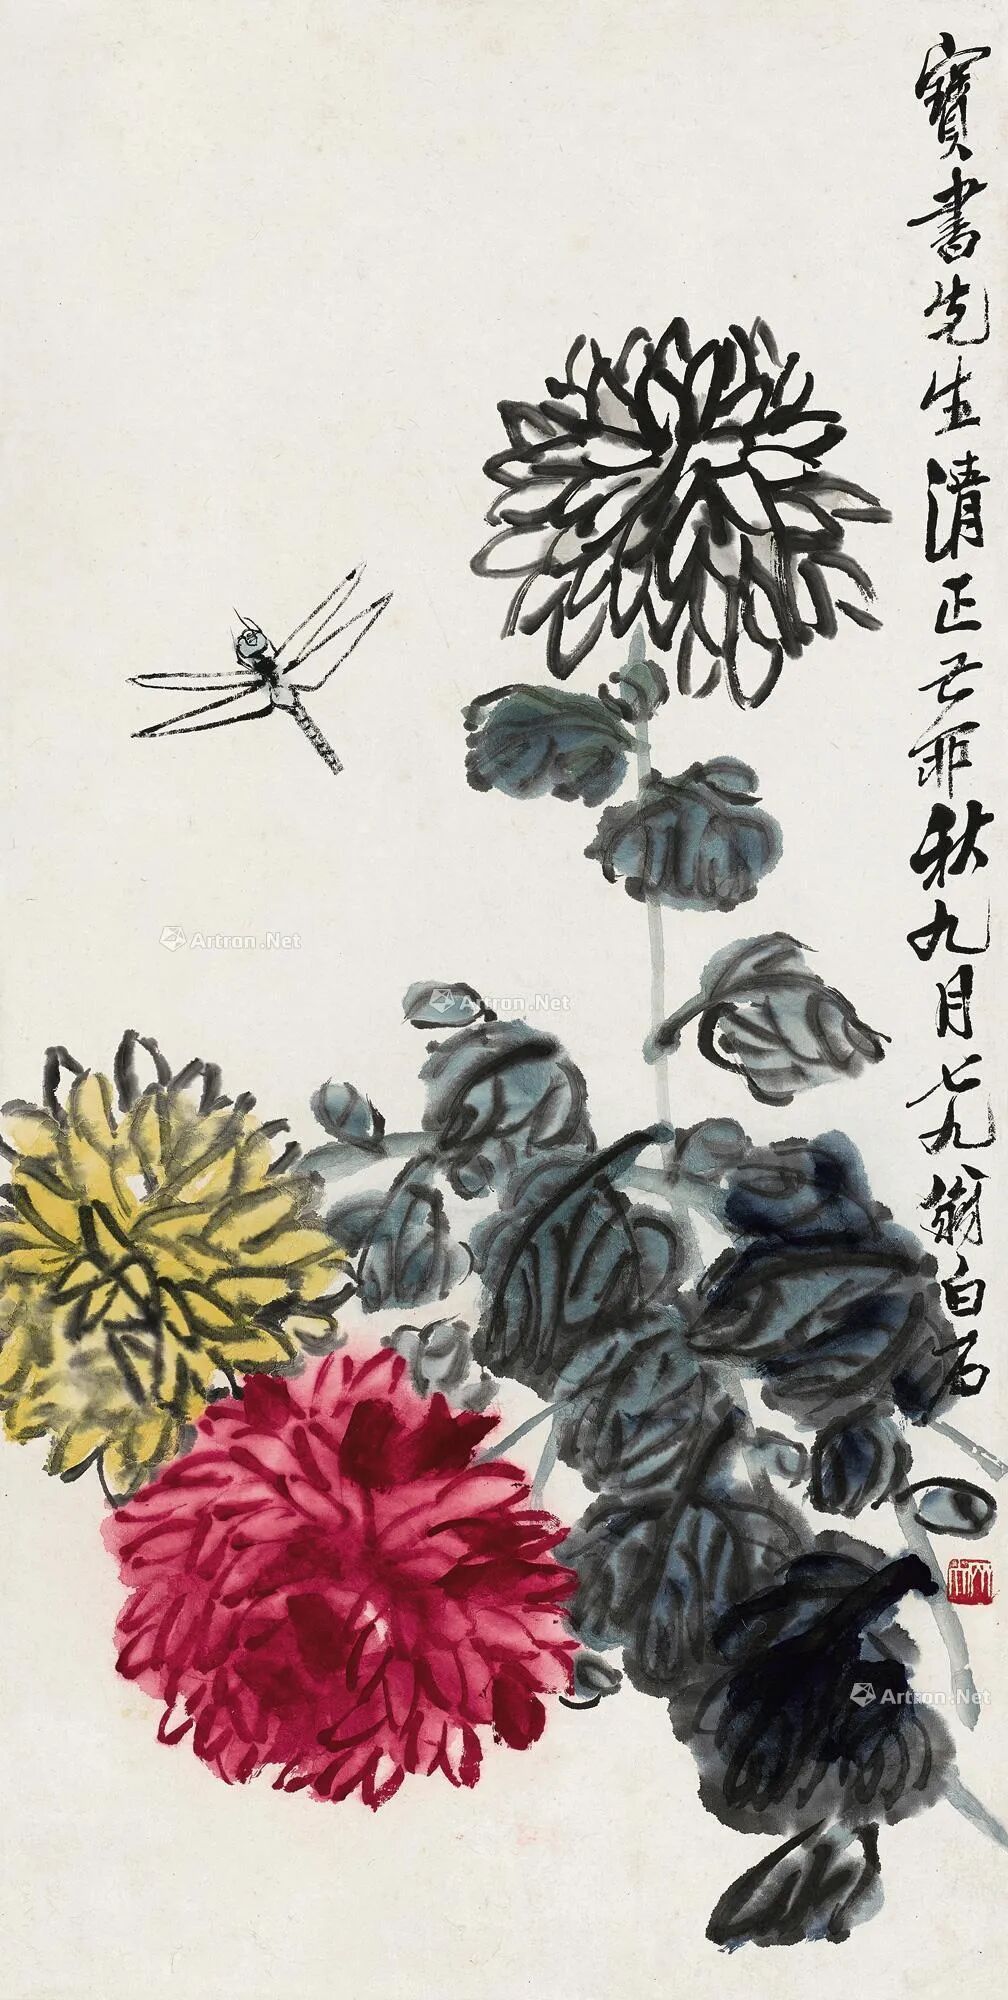 寶書先生清正己邪秋九月七九翁白石
Artron.Net
Artron.Net
Artron.Net